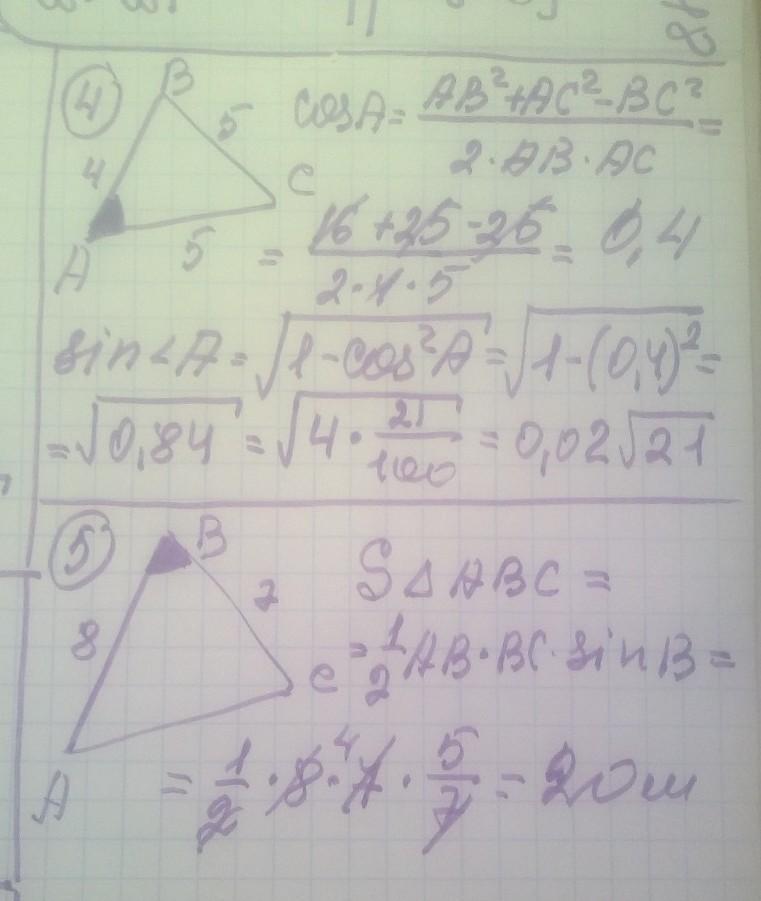 ④ B
4 5 C
A 5
cosA = (AB²+AC²-BC²)/(2·AB·AC) =
= (16+25-25)/(2·4·5) = 0,4
sin∠A = √(1-cos²A) = √(1-(0,4)²) =
= √0,84 = √(4·21/100) = 0,02√21
⑤ B
8 7 C
A
S△ABC =
= 1/2 AB·BC·sinB =
= 1/2 · 8 · 4 7 · 5/7 = 20